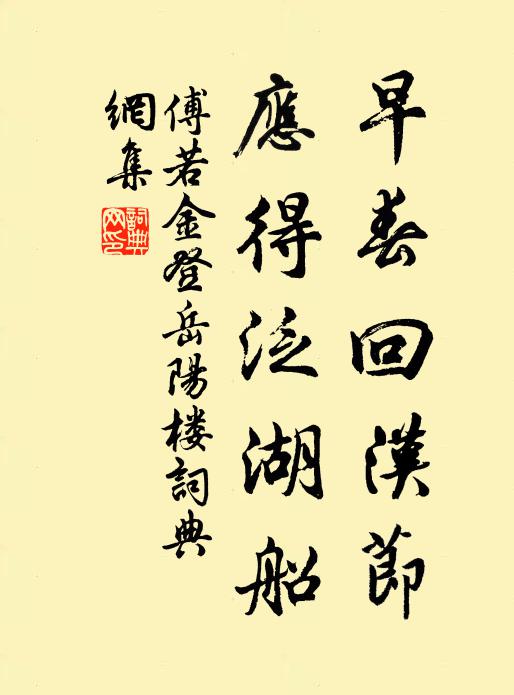 早春回漢節
應得泛湖船
傅若金登岳陽楼詞典
網集
詞典
网印